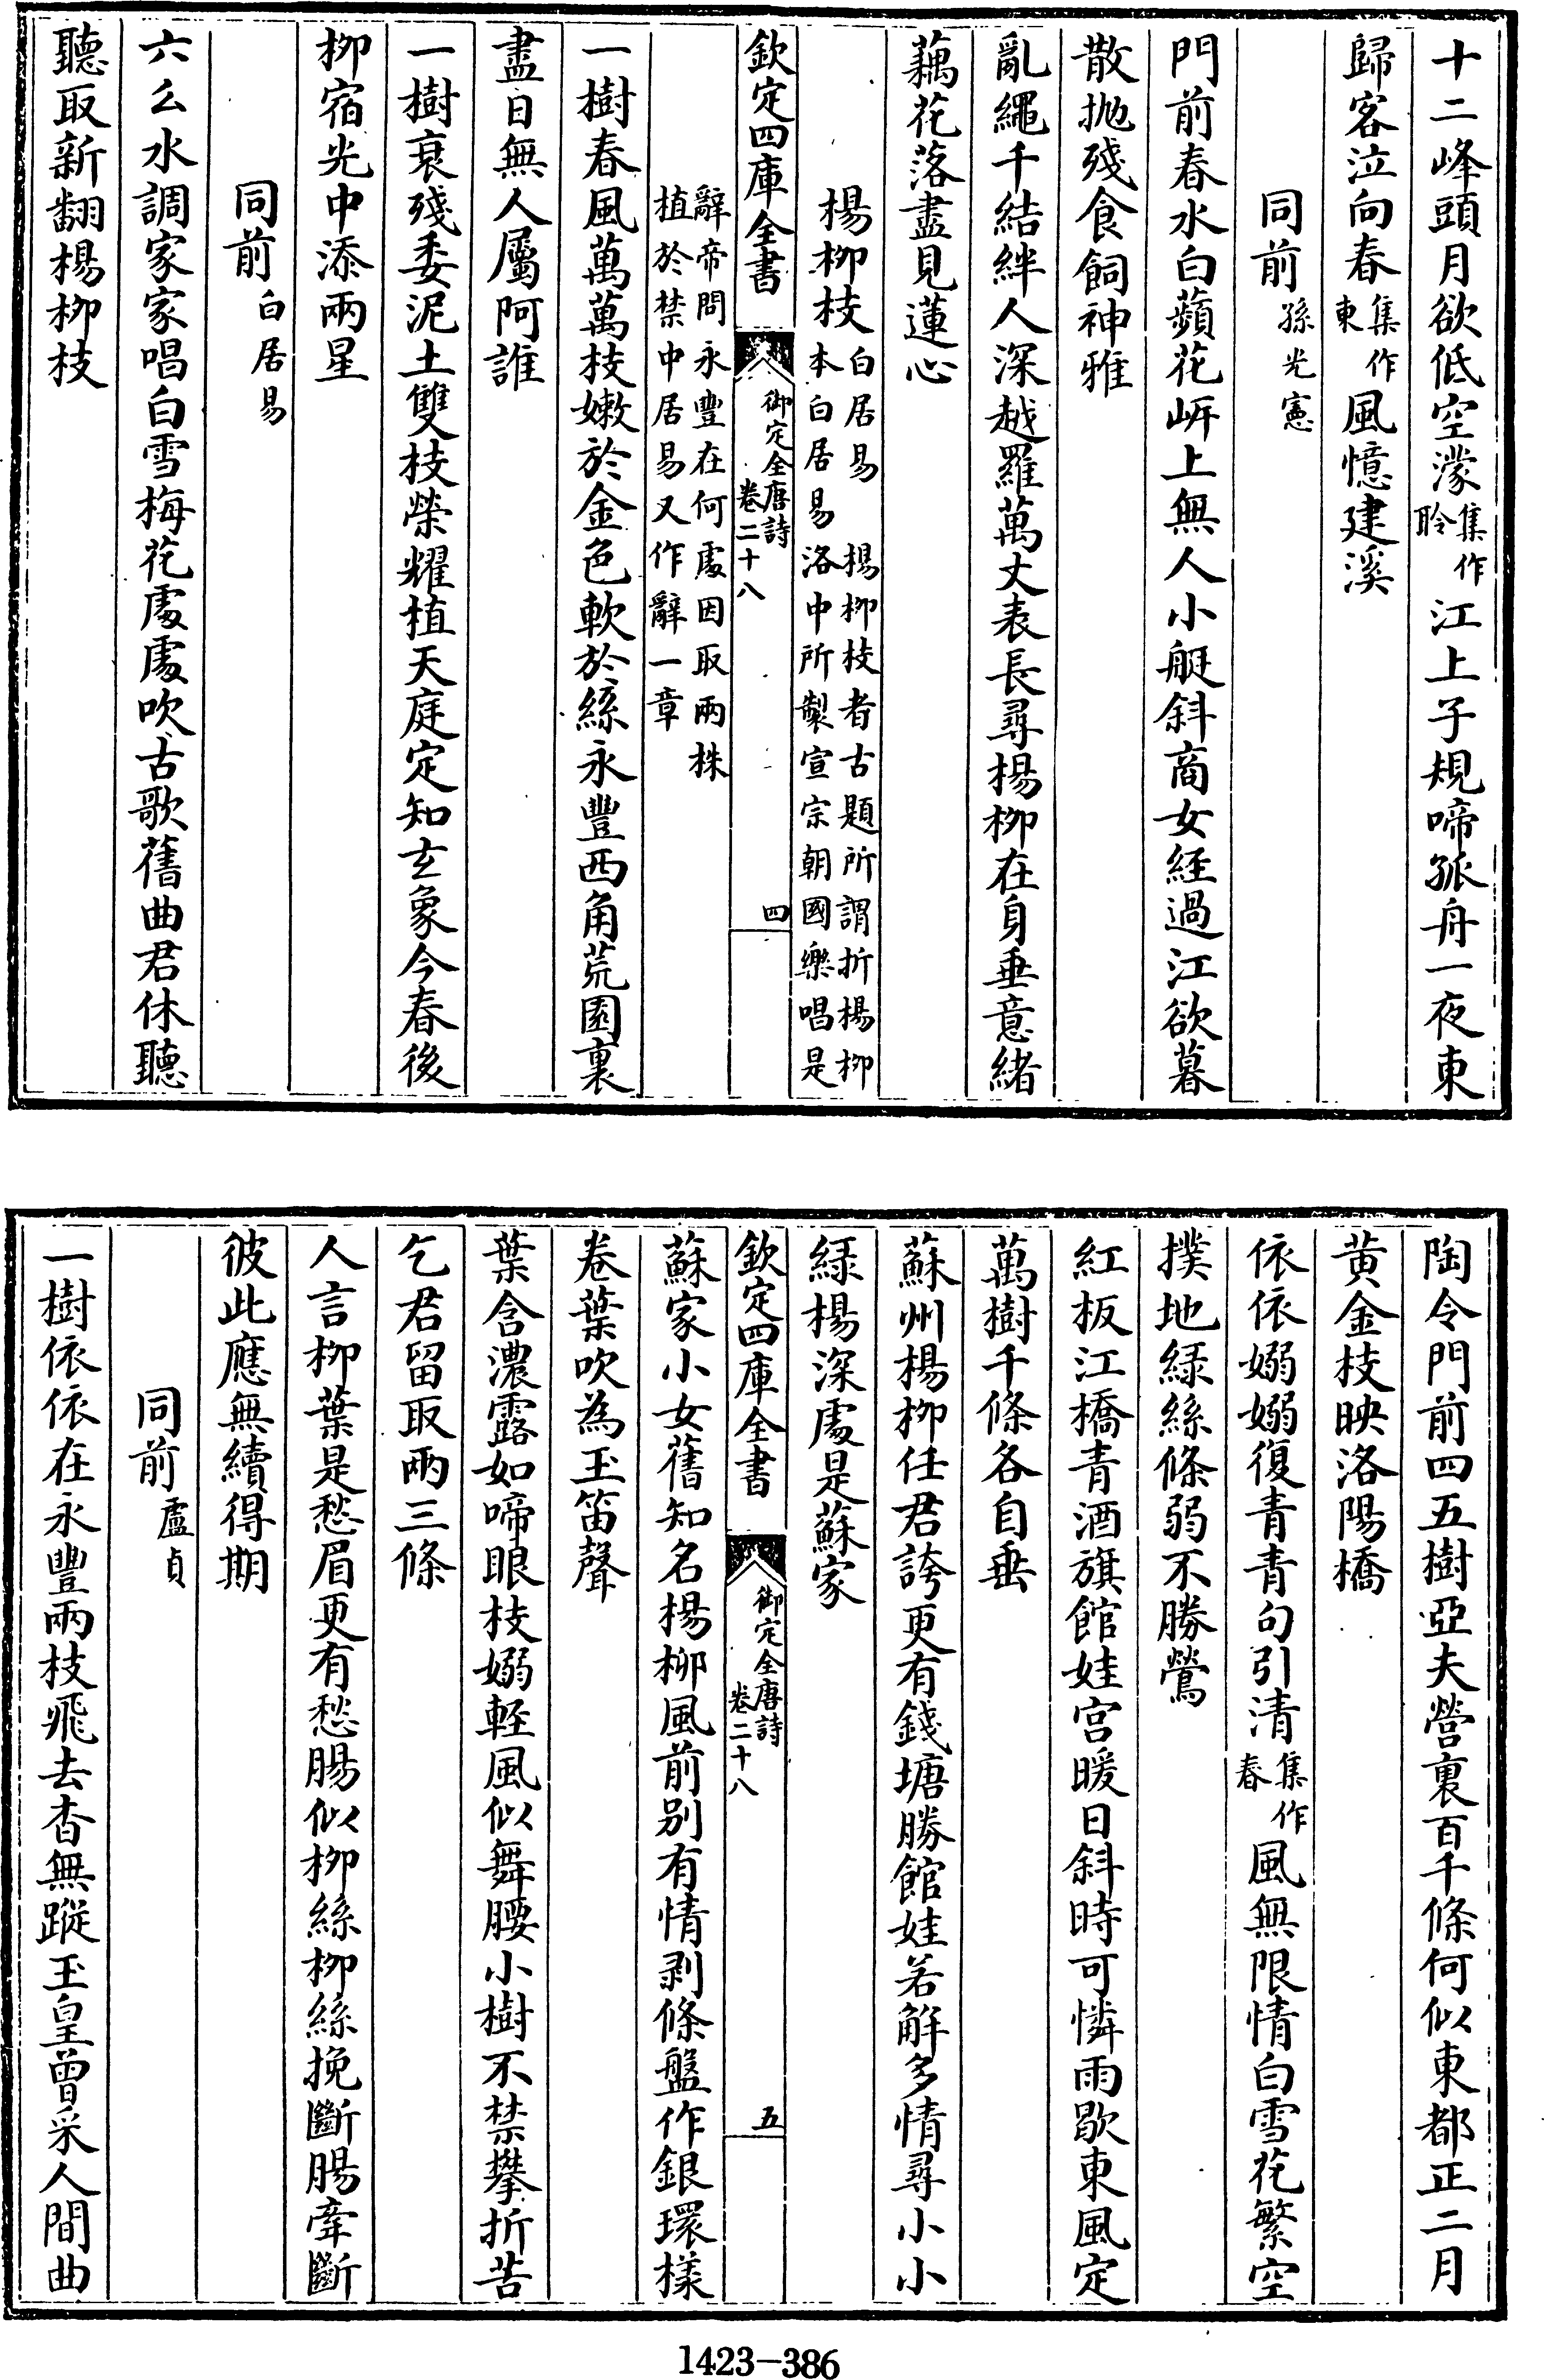 十二峰頭月欲低空濛集作聆江上子規啼孤舟一夜東
歸客泣向春集作東風憶建溪
同前孫光憲
門前春水白蘋花岍上無人小艇斜商女経過江欲暮
散抛殘食飼神雅
亂繩千結絆人深越羅萬丈表長尋楊柳在身垂意緒
藕花落盡見蓮心
楊柳枝白居易 楊柳枝者古題所謂折楊柳
本白居易洛中所製宣宗朝國樂唱是
欽定四庫全書
御定全唐詩
卷二十八
四
辭帝問永豐在何處因取兩株
植於禁中居易又作辭一章
一樹春風萬萬枝嫩於金色軟於絲永豐西角荒園裏
盡日無人屬阿誰
一樹衰殘委泥土雙枝榮耀植天庭定知玄象今春後
柳宿光中添兩星
同前白居易
六么水調家家唱白雪梅花處處吹古歌舊曲君休聽
聽取新翻楊柳枝
陶令門前四五樹亞夫營裏百千條何似東都正二月
黄金枝映洛陽橋
依依嫋嫋復青青句引清集作春風無限情白雪花繁空
撲地緑絲條弱不勝鶯
紅板江橋青酒旗館娃宫暖日斜時可憐雨歇東風定
萬樹千條各自垂
蘇州楊柳任君誇更有錢塘勝館娃若解多情尋小小
緑楊深處是蘇家
欽定四庫全書
御定全唐詩
卷二十八
五
蘇家小女舊知名楊柳風前别有情剥條盤作銀環樣
卷葉吹為玉笛聲
葉含濃露如啼眼枝嫋輕風似舞腰小樹不禁攀折苦
乞君留取兩三條
人言柳葉是愁眉更有愁腸似柳絲柳絲挽斷腸牽斷
彼此應無續得期
同前盧貞
一樹依依在永豐兩枝飛去杳無蹤玉皇曾采人間曲
1423-386